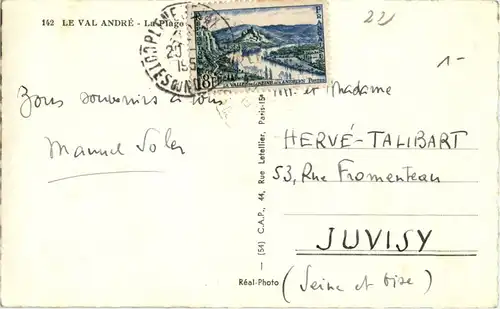 142 LE VAL ANDRÉ - La Plage
221
1-
FRANCE
18F
VALLÉE DE LA SEINE AUX ANDELYS Postes
20
195
CÔTES DU N
Bons souvenirs à tous
Manuel Soler
M. et Madame
HERVÉ-TALIBART
53, Rue Fromenteau
JUVISY
(Seine et Oise)
(54) C.A.P., 44, Rue Letellier, Paris-15e
Réal-Photo